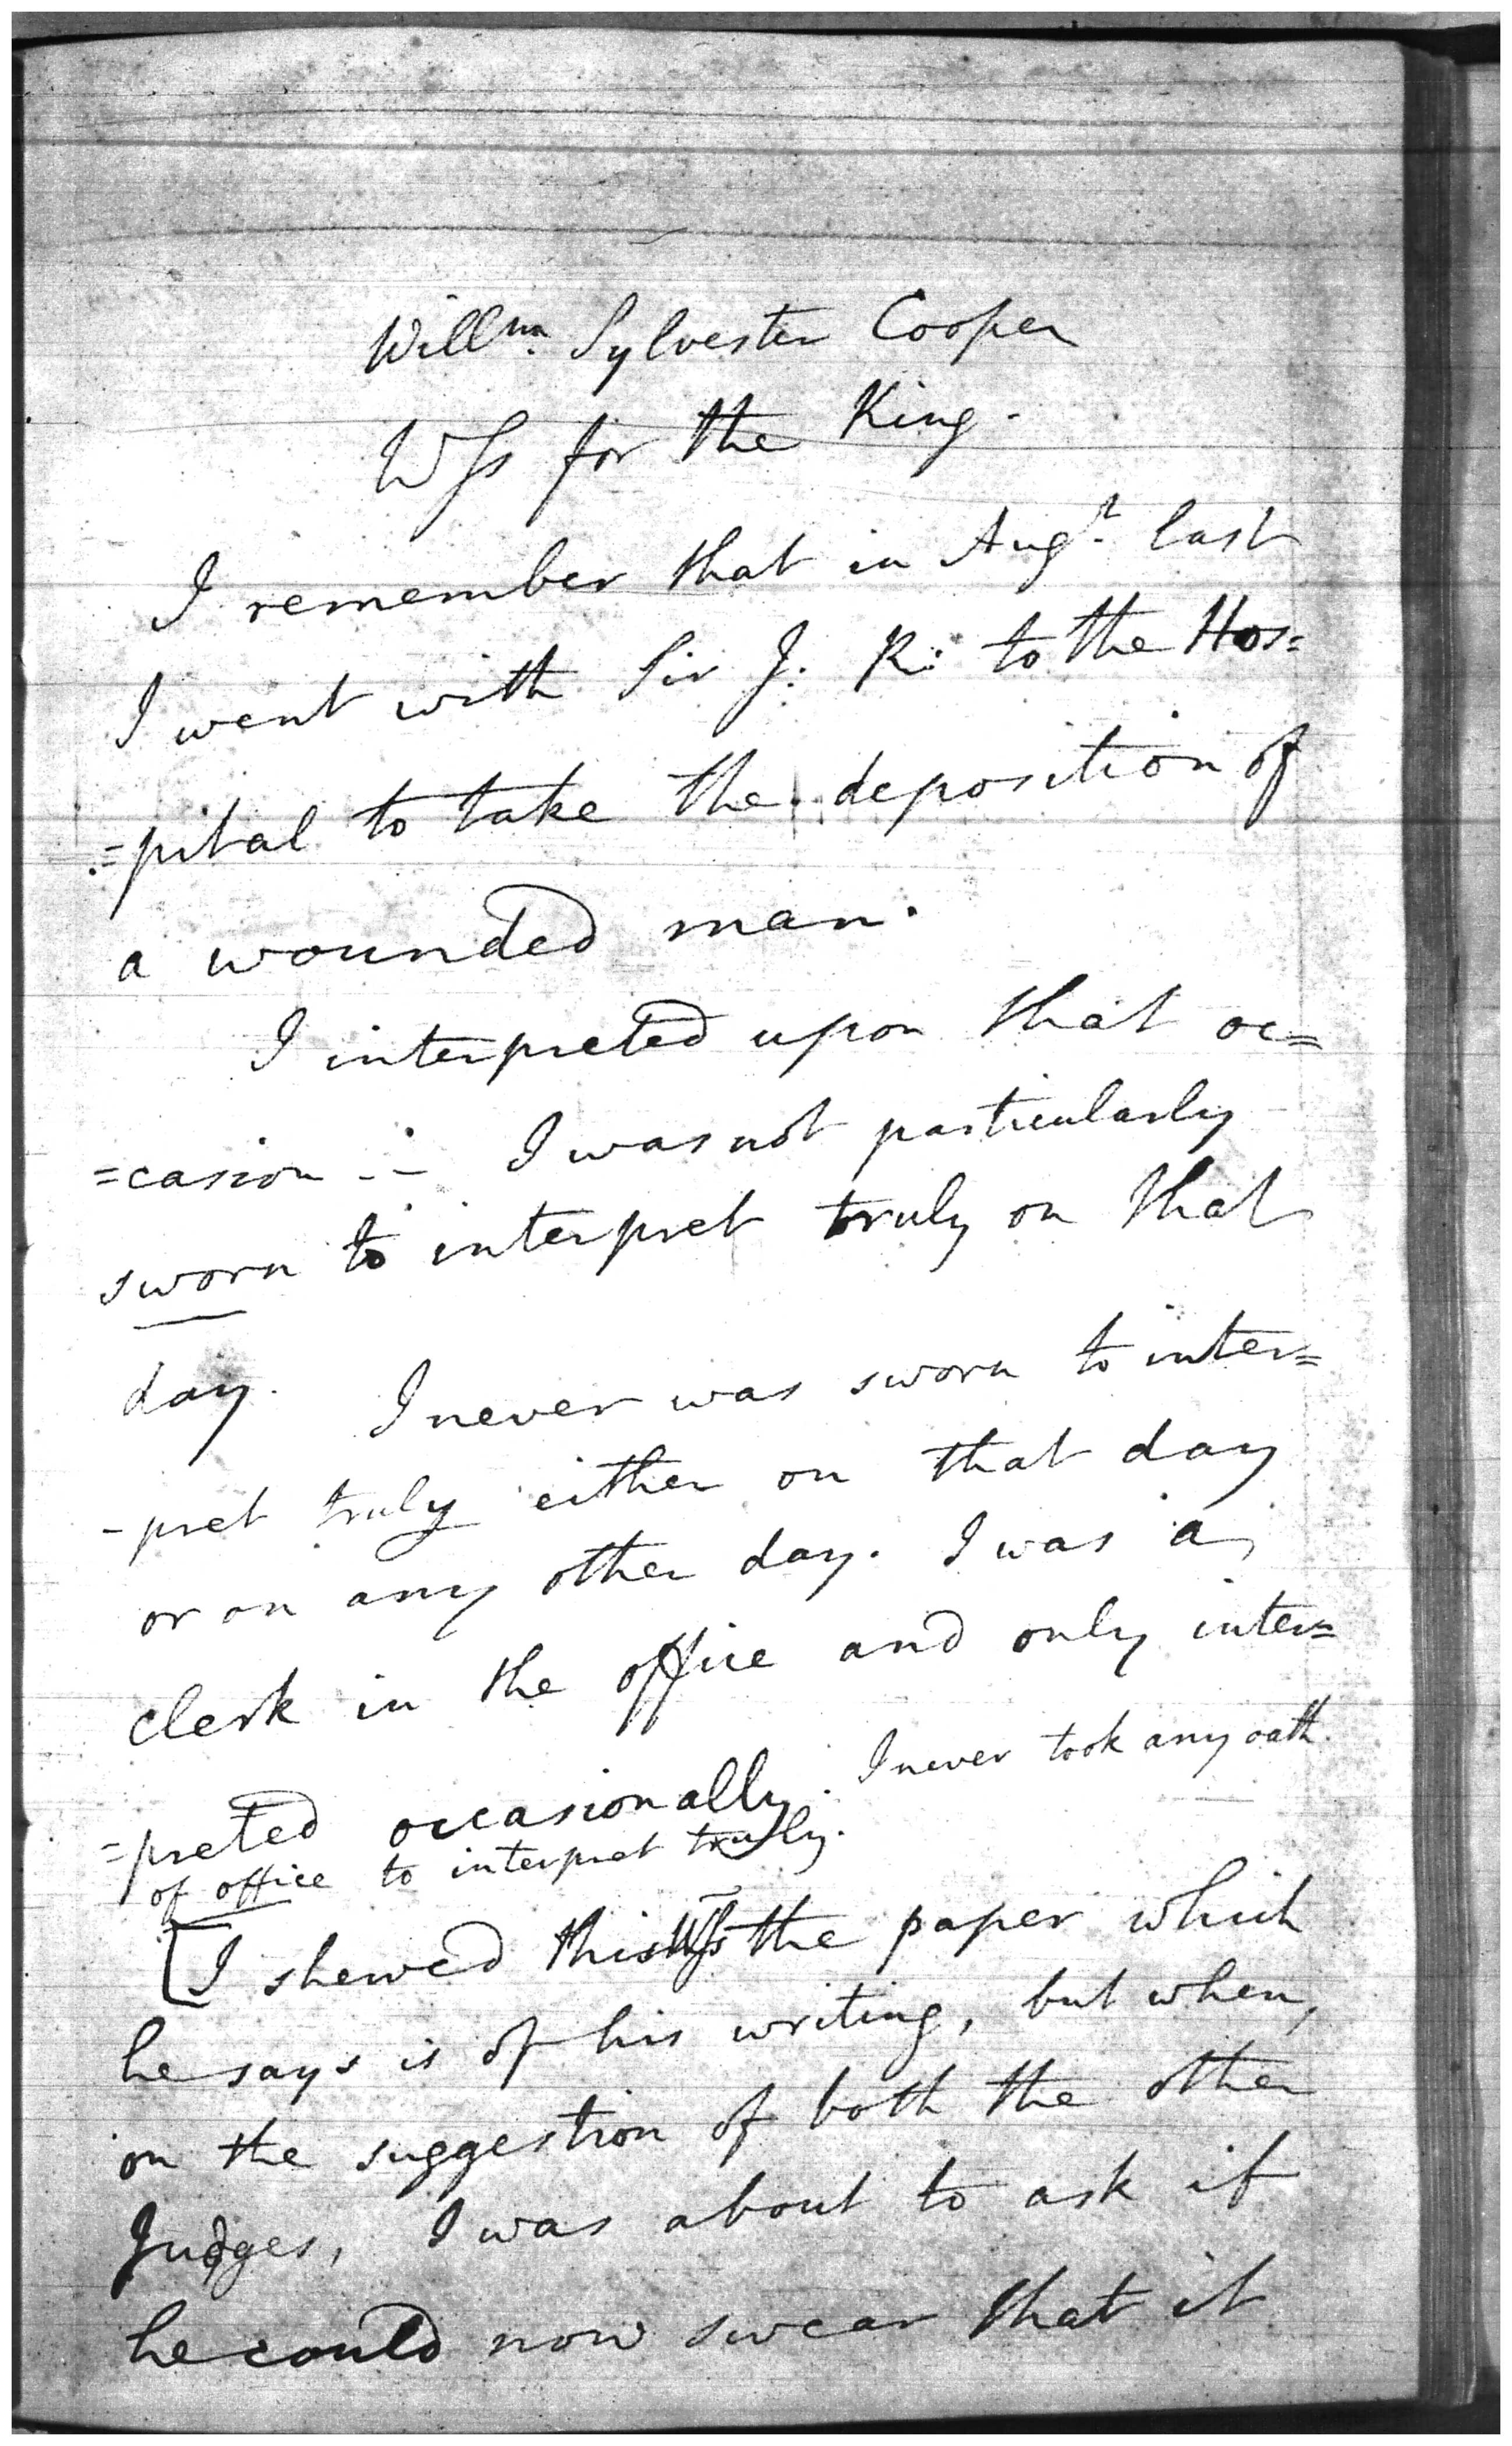 Willm. Sylvester Cooper
Wss for the King.
I remember that in Augt. last
I went with Sir J. R: to the Hos=
=pital to take the deposition of
a wounded man.
I interpreted upon that oc=
=casion -.- I was not particularly
sworn to interpret truly on that
day. I never was sworn to inter=
-pret truly either on that day
or on any other day. I was a
clerk in the office and only inter=
=preted occasionally. I never took any oath
of office to interpret truly.
[I shewed this Wss the paper which
he says is of his writing, but when,
on the suggestion of both the other
Judges, I was about to ask if
he could now swear that it